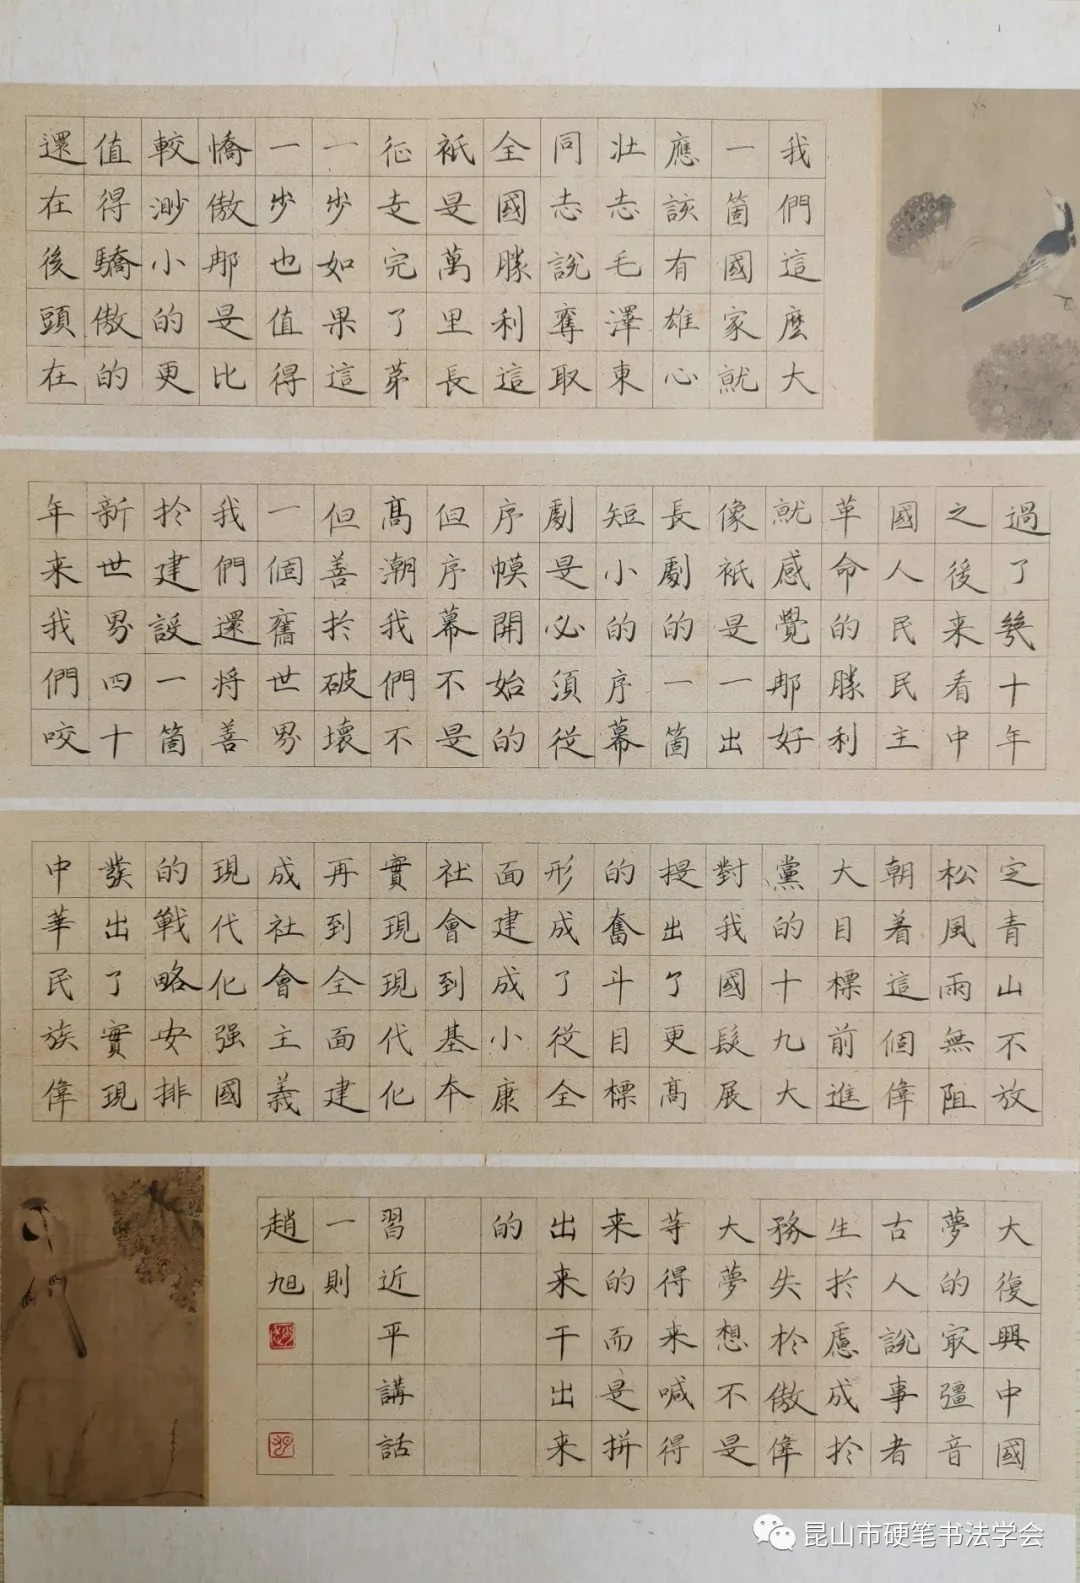 我們這麼大
一箇國家就
應該有雄心
壯志毛澤東
同志說奪取
全國勝利這
衹是萬里長
征走完了苐
一步如果這
一步也值得
憍傲那是比
較渺小的更
值得驕傲的
還在後頭在
過了幾十年
之後来看中
國人民民主
革命的勝利
就感覺那好
像衹是一出
長劇的一箇
短小的序幕
劇是必須従
序幙開始的
但序幕不是
髙潮我們不
但善扵破壞
一個舊世界
我們還将善
扵建設一箇
新世界四十
年来我們咬
定青山不放
松風雨無阻
朝着這個偉
大目標前進
黨的十九大
對我國髮展
提出了更髙
的奮斗目標
形成了従全
面建成小康
社會到基本
實現現代化
再到全面建
成社會主義
現代化强國
的戰略安排
發出了實現
中華民族偉
大復興中國
夢的㝡彊音
古人說事者
生扵慮成扵
務失於傲偉
大夢想不是
等得来喊得
来的而是拼
出来干出来
的
習近平講話
一則
趙旭
昆山市硬笔书法学会